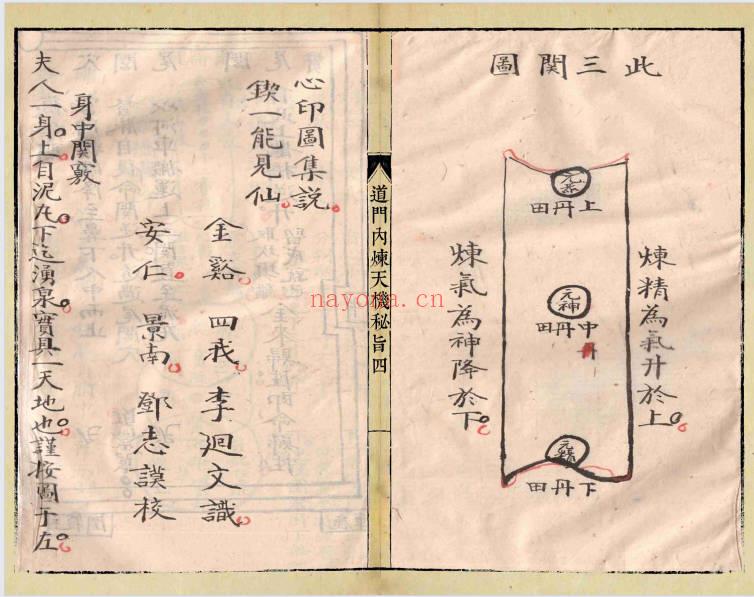 此三関圖
煉精為氣升於上。
元炁
上丹田
元神
中丹田
丹
元精
下丹田
煉氣為神降於下。
道門內煉天機秘旨四
心印圖集説。
鍥一能見仙。
金谿。四我。李廻文識。
安仁。景南。鄧志謨校
身中関竅
夫人一身。上自泥丸。下迄湧泉。實具一天地也。謹按圖于左。
nayona.cn